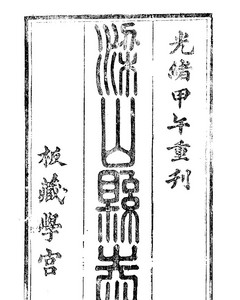 光緒甲午重刊
梁山縣志
板藏學宮